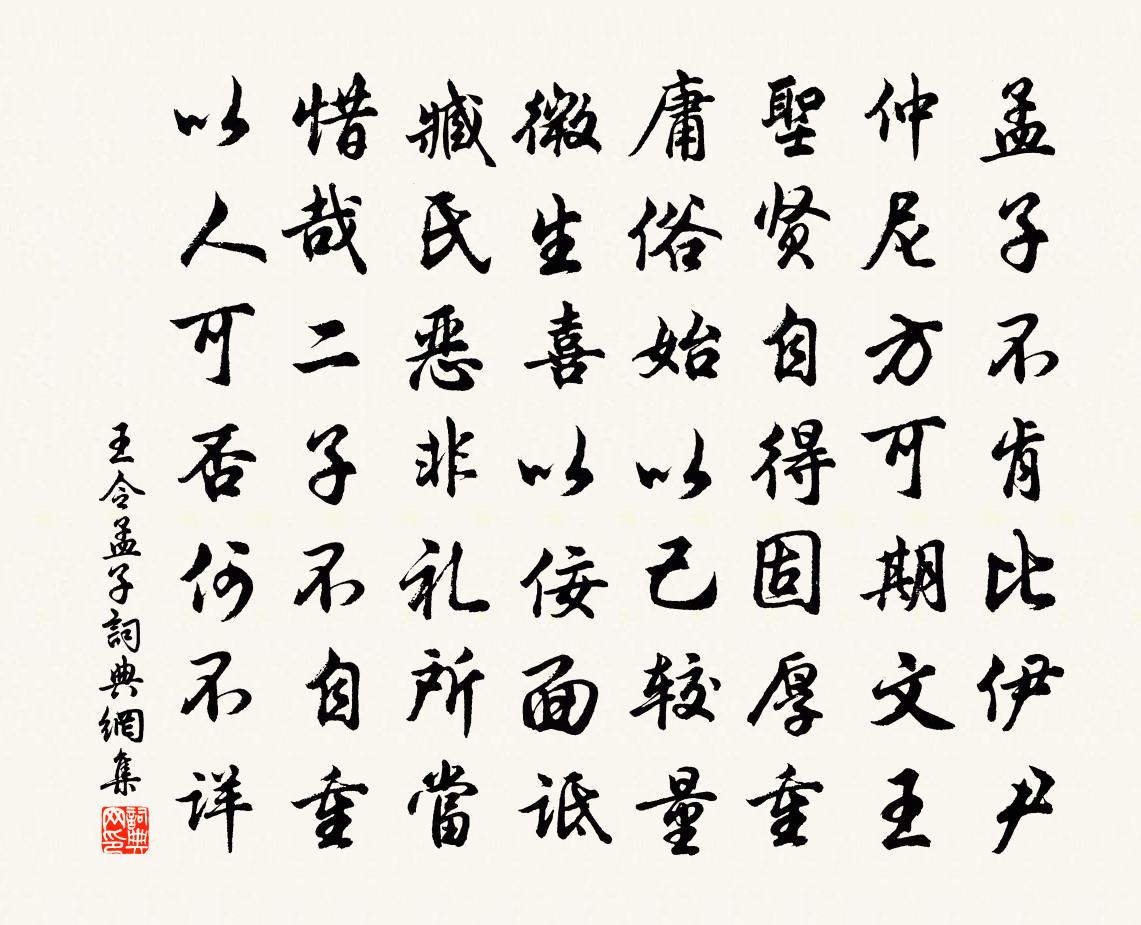 孟子不肯比伊尹
仲尼方可期文王
聖贤自得固厚重
庸俗始以己较量
微生喜以佞面诋
臧氏恶非礼所當
惜哉二子不自重
以人可否何不详
王令孟子詞典網集
詞典网印